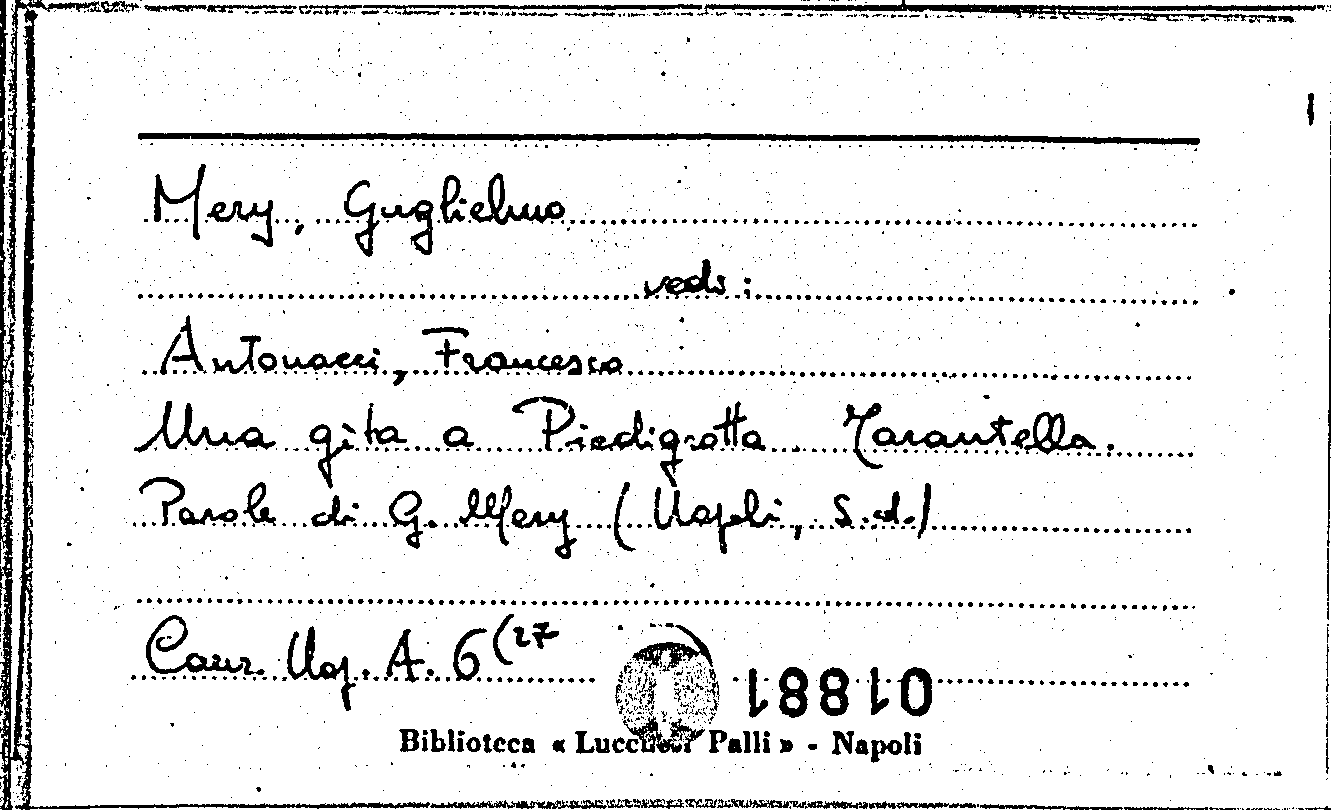 Mery, Guglielmo
vedi:
Antonacci, Francesco
Una gita a Piedigrotta. Tarantella.
Parole di G. Mery (Napoli, s.d.)
Canz. Nap. A. 6(27
01881
Biblioteca « Lucchesi Palli » - Napoli